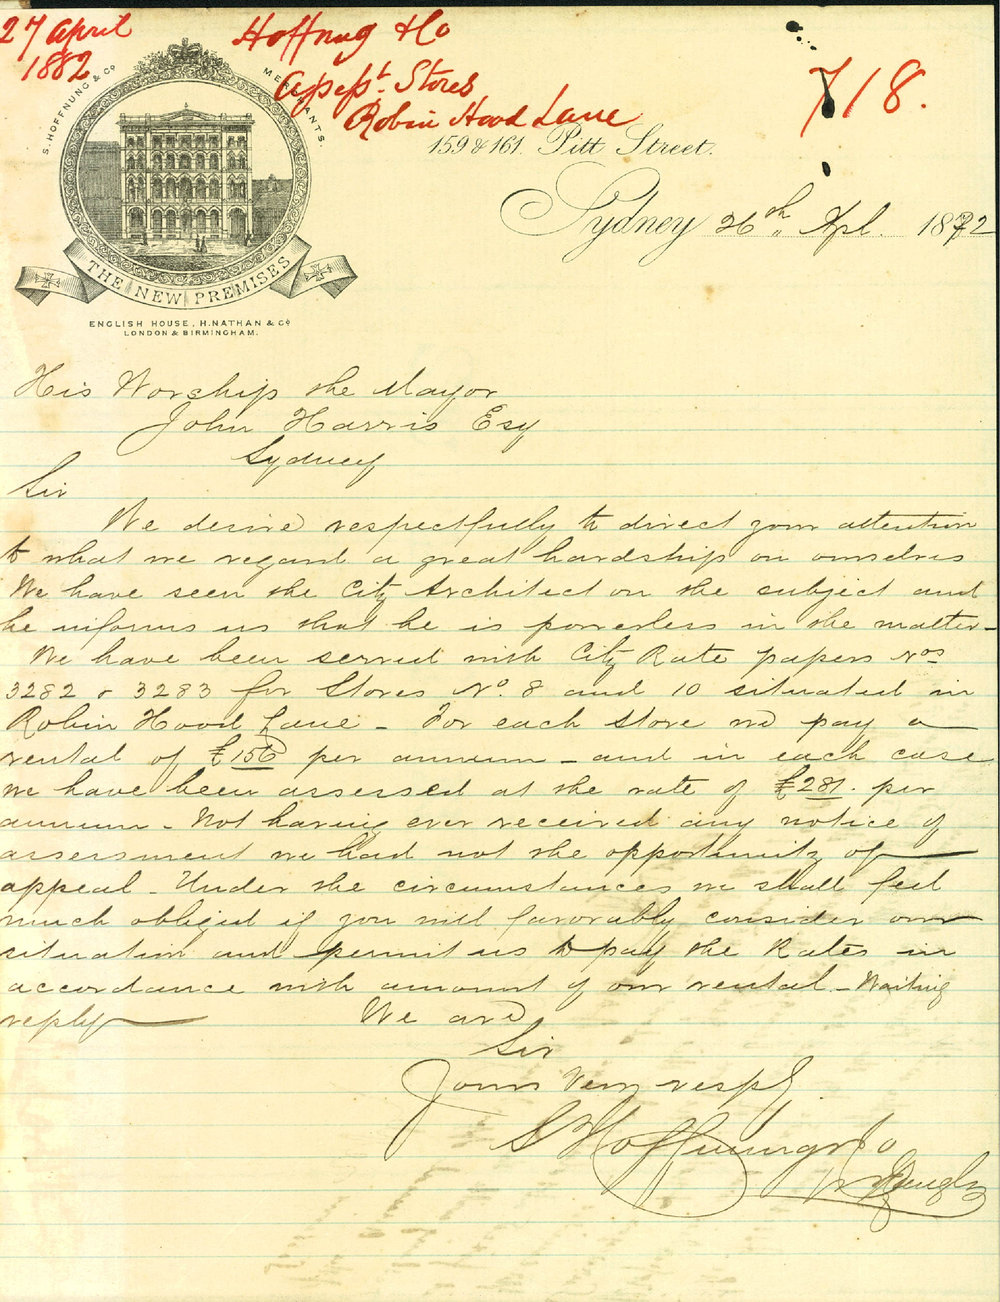 27 April
1882
Hoffnug & Co
Stores
Robin Hood Lane
718.
S. HOFFNUNG & Co
MERCHANTS.
THE NEW PREMISES
ENGLISH HOUSE, H. NATHAN & Co
LONDON & BIRMINGHAM.
159 & 161. Pitt Street.
Sydney 26th Apl. 1882
His Worship the Mayor
John Harris Esq
Sydney
Sir
We desire respectfully to direct your attention
to what we regard a great hardship on ourselves
We have seen the City Architect on the subject and
he informs us that he is powerless in the matter -
We have been served with City Rate papers Nos
3282 & 3283 for Stores No. 8 and 10 situated in
Robin Hood Lane - For each store we pay a
rental of £156 per annum - and in each case
we have been assessed at the rate of £281. per
annum - Not having ever received any notice of
assessment we had not the opportunity of
appeal - Under the circumstances we shall feel
much obliged if you will favorably consider our
situation and permit us to pay the Rates in
accordance with amount of our rental - Waiting
reply
We are
Sir
Yours Very respy
S Hoffnung & Co